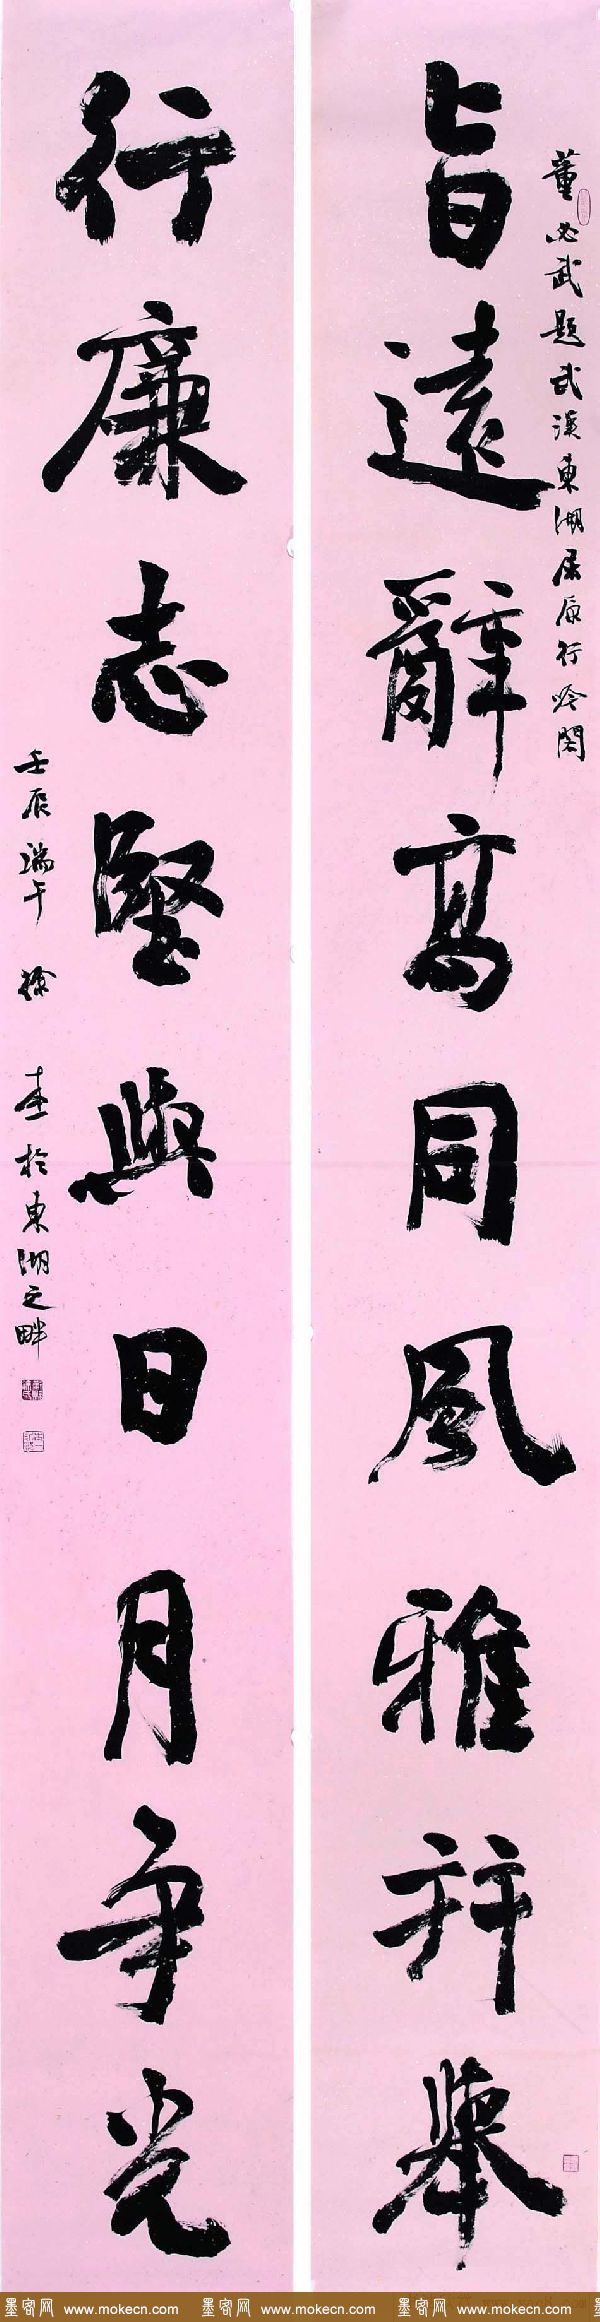 董必武題武漢東湖屈原行吟閣
旨遠辭高同風雅並舉
行廉志堅與日月爭光
壬辰端午 徐 書於東湖之畔
墨客网 www.mokecn.com 墨客网 www.mokecn.com 墨客网 www.mokecn.com